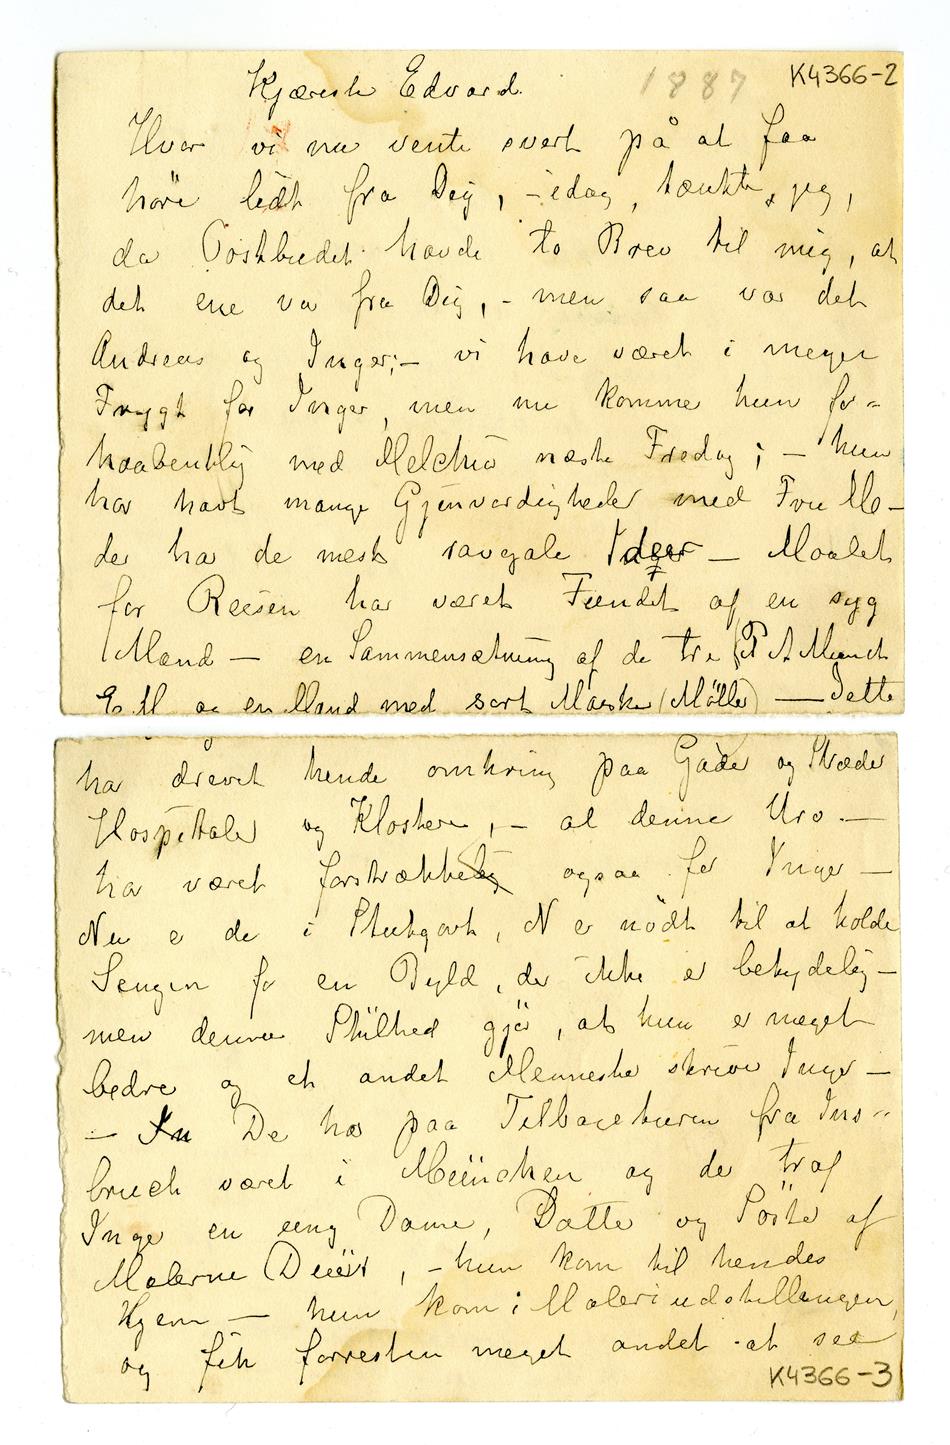 Kjæreste Edvard. 1887 K4366-2
Hvor vi nu vente svert på at faa
høre lidt fra Dig, - idag, tænkte jeg,
da Postbudet havde to Brev til mig, at
det ene var fra Dig, - men saa var det
Andreas og Inger; - vi have været i megen
Frygt for Inger, men nu komme hun for-
haabentlig med Melchior næste Fredag; - hun
har havt mange Gjenvordigheder med Fru Mo-
der har de mest ravgale Ideer - Maalet
for Reisen har været Fundet af en syg
Mand - en Sammensætning af de tre (P A Munch
E M og en Mand med sort Maske (Møller) - Dette
har drevet hende omkring paa Gader og Stræder
Hospitaler og Klostere, - al denne Uro -
har været forstrækkelig ogsaa for Inger -
Nu er de i Stutgart, N er nødt til at holde
Sengen for en Byld, der ikke er betydelig -
men denne Stilhed gjør, at hun er meget
bedre og et andet Menneske skriver Inger -
- De har paa Tilbageturen fra Ins-
bruck været i München og der traf
Inger en ung Dame, Datter og Søster af
Malerne , - hun kom til hendes
Hjem - hun kom i Maleriudstillingen,
og fik forresten meget andet at see
K4366-3